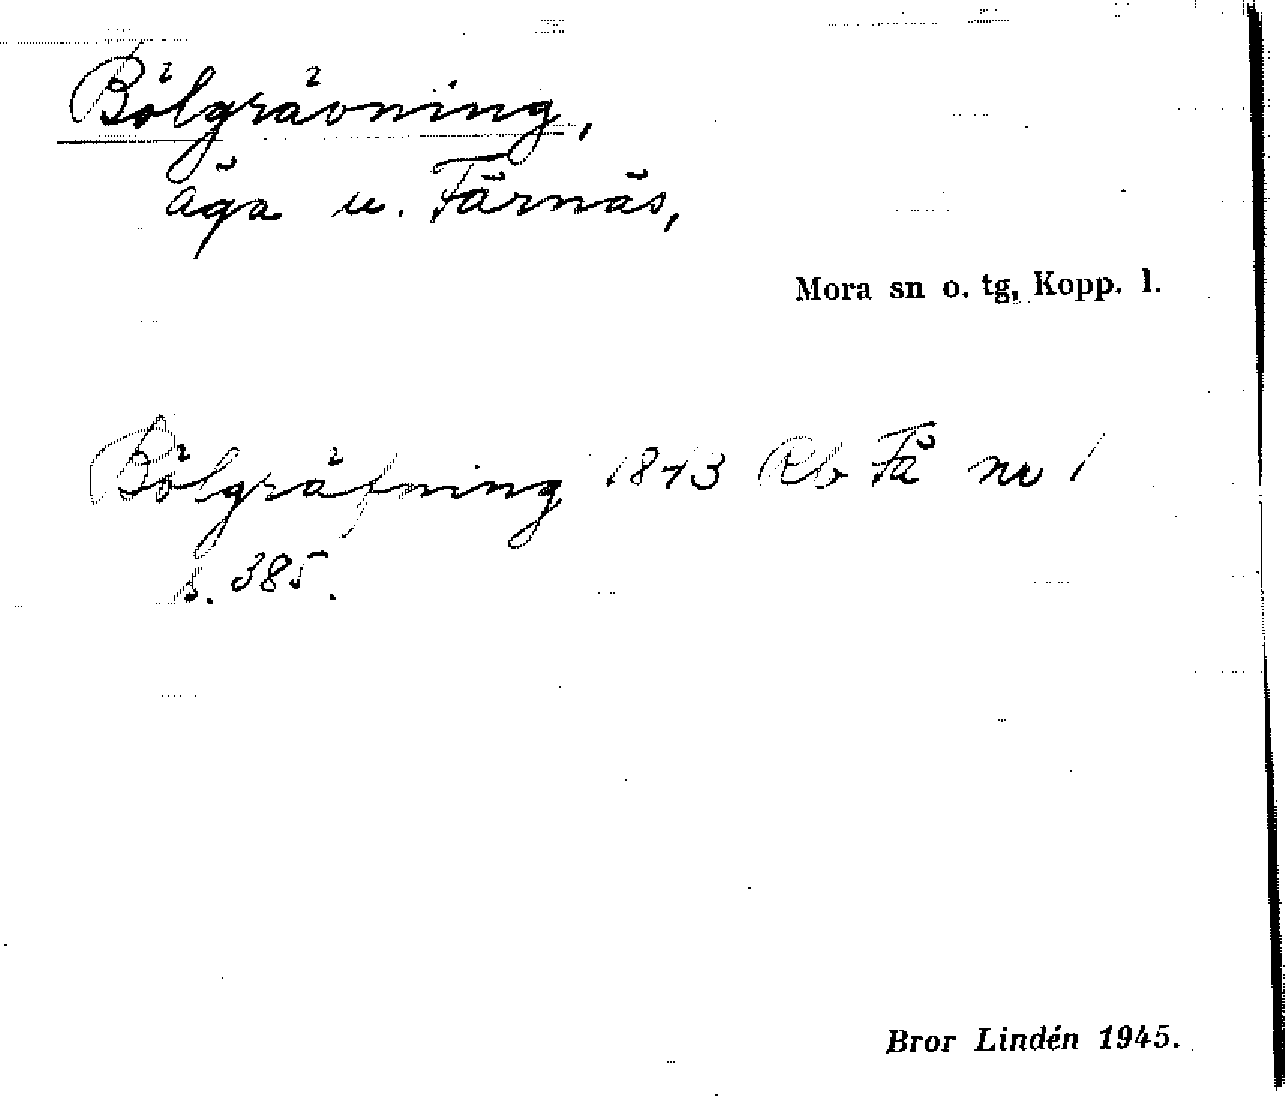 Bölgrävning,
äga u. Färnäs,
Mora sn o. tg, Kopp. l.
Bölgräfning 1843 Rb Fä nr 1
s. 385.
Bror Lindén 1945.